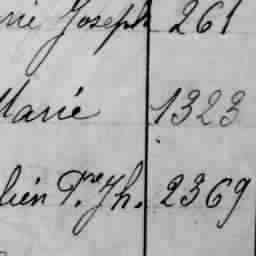 Joseph 261
Marie 1323
lien Pre Jh. 2369